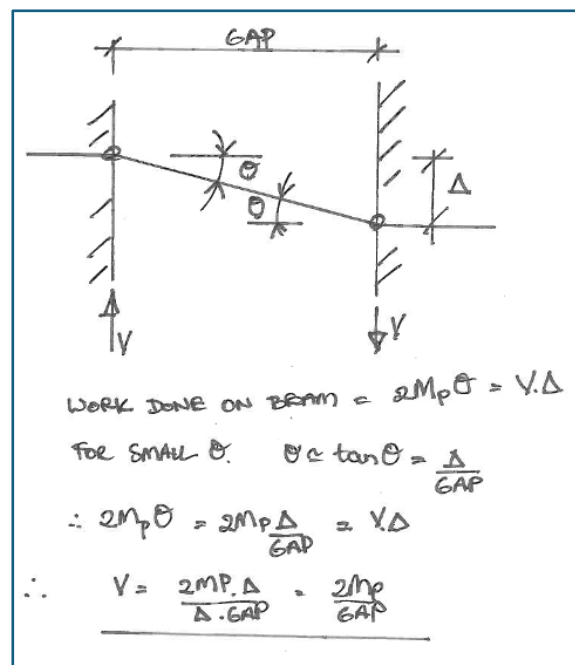 GAP
θ
θ
Δ
V
V
WORK DONE ON BEAM = 2Mpθ = V.Δ
FOR SMALL θ. θ ≃ tanθ = Δ/GAP
∴ 2Mpθ = 2Mp Δ/GAP = V.Δ
∴ V = 2MP.Δ/Δ.GAP = 2Mp/GAP